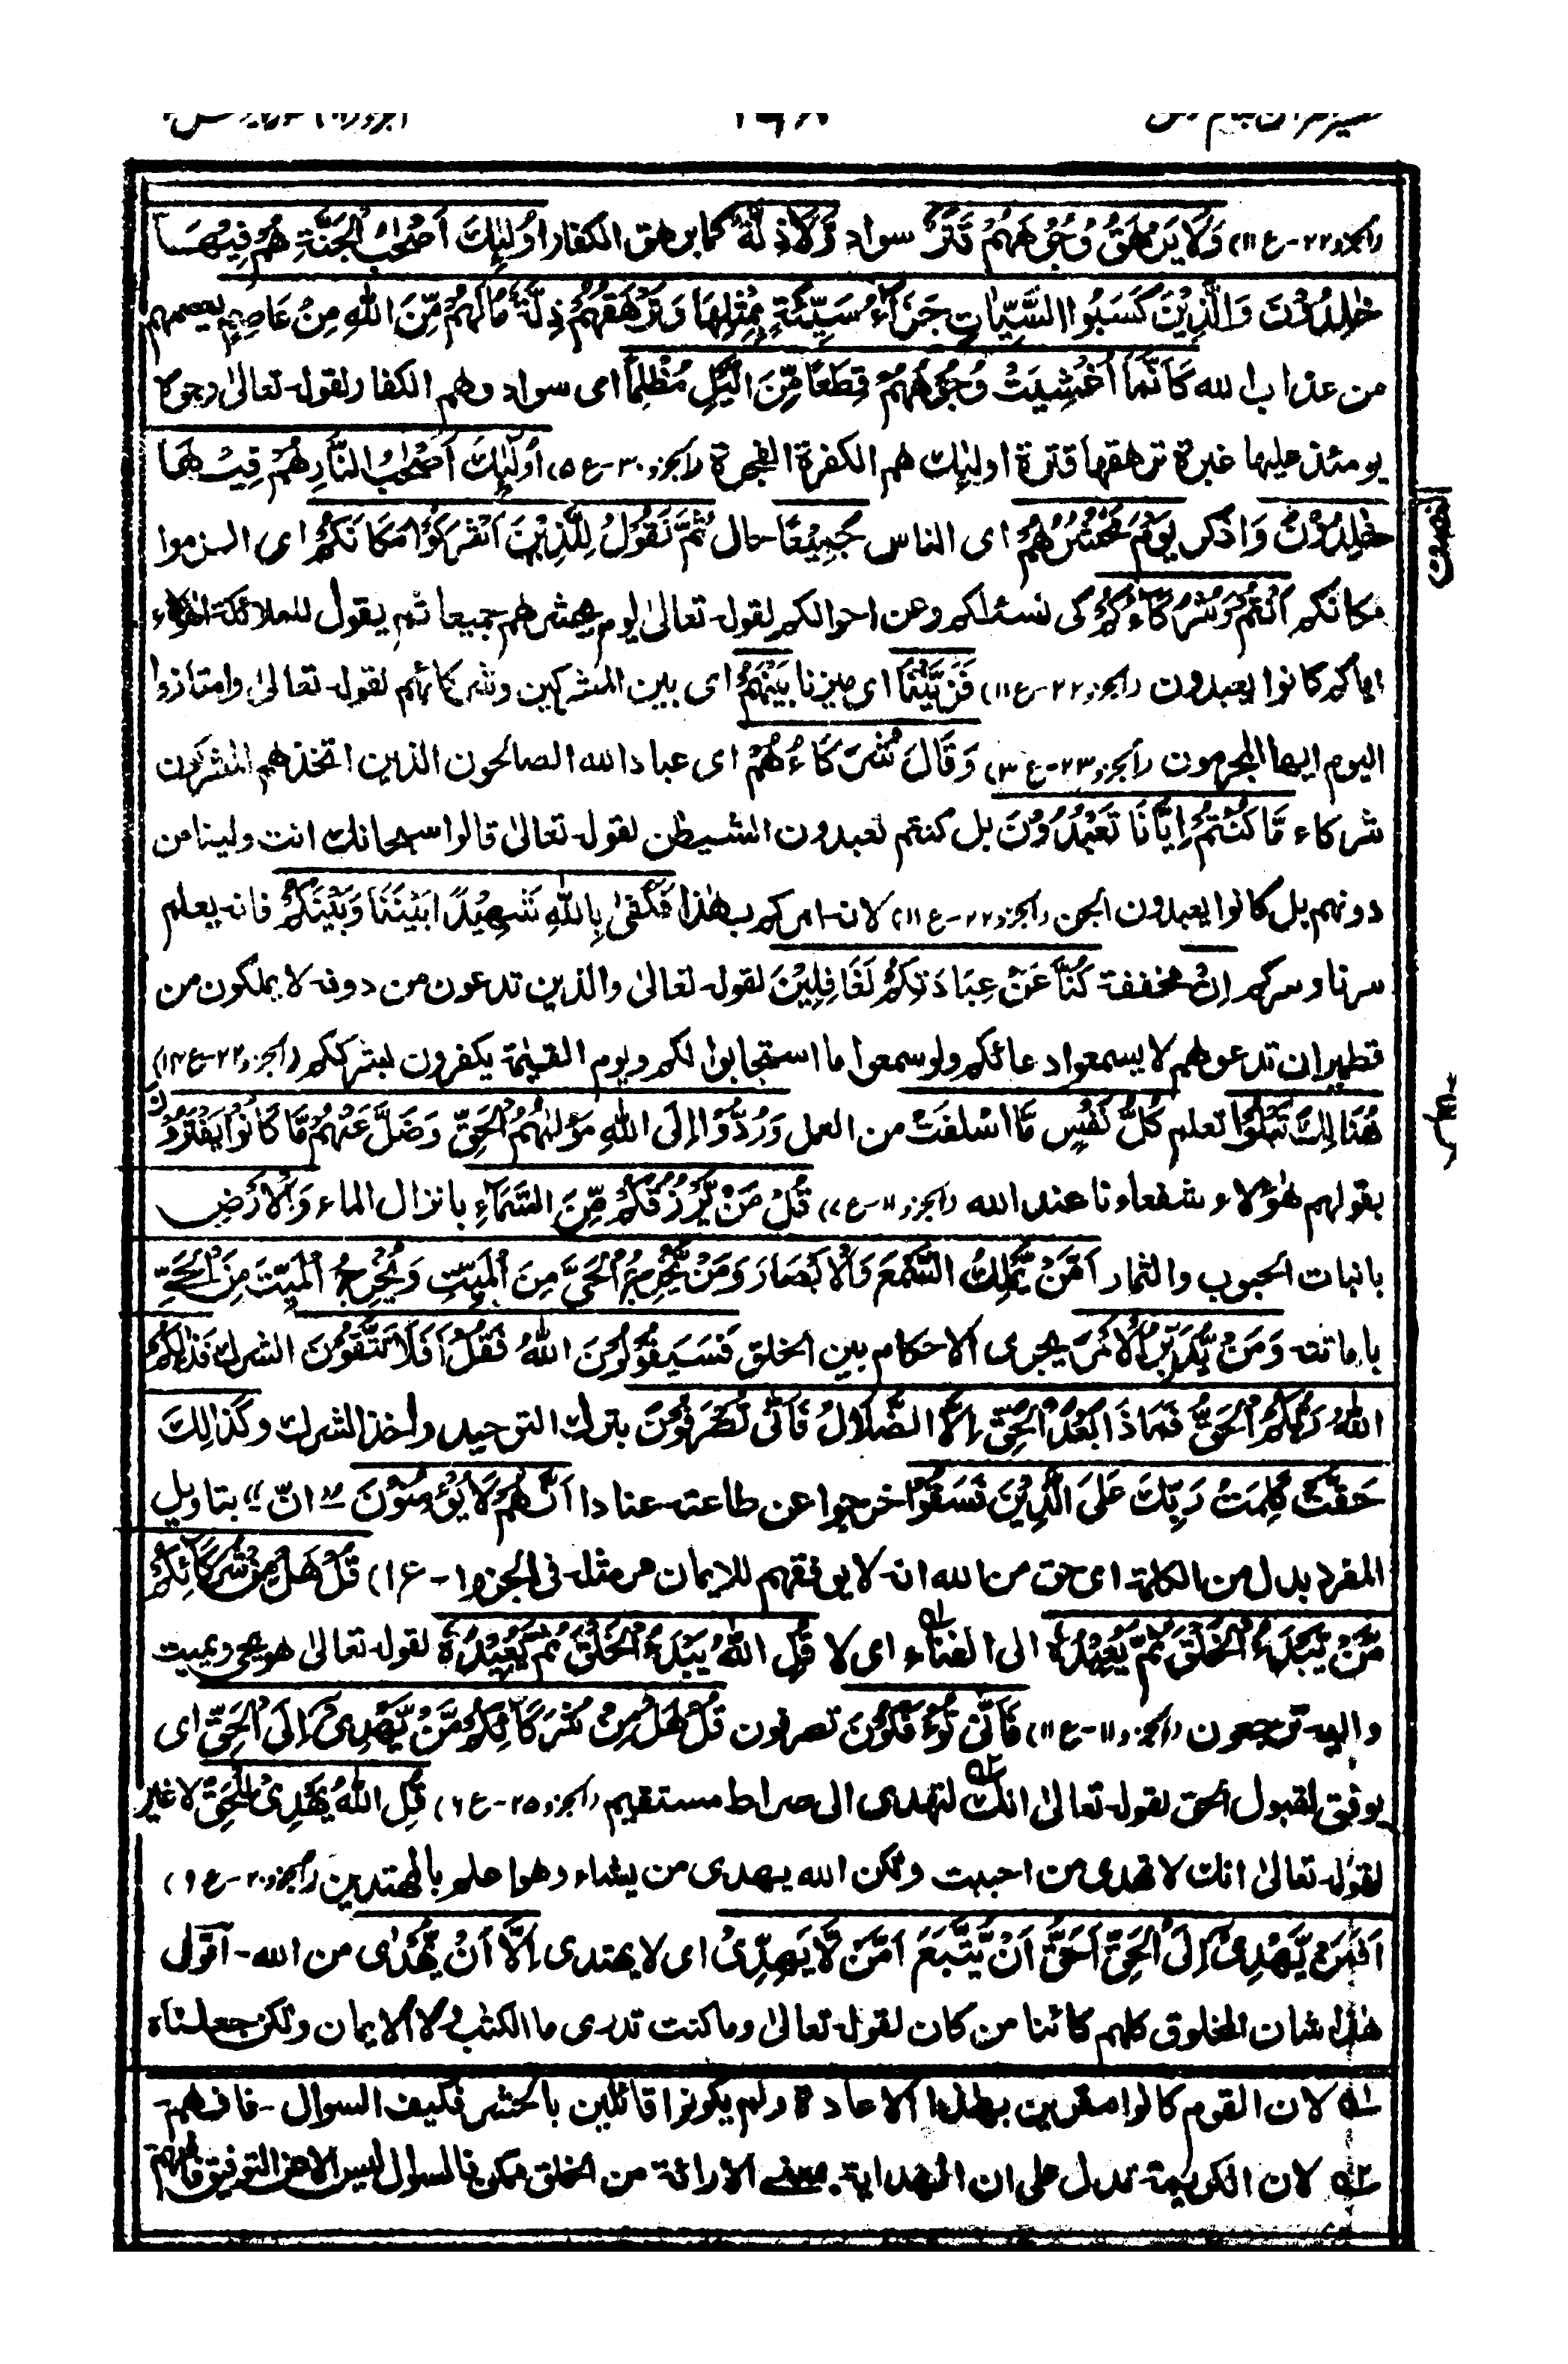 (الجزو ٢٢-ع ١١) وَلَا يَرْهَقُ وُجُوْهَهُمْ قَتَرٌ سواد وَّلَا ذِلَّةٌ كما يرهق الكفار اُولٰٓئِكَ اَصْحٰبُ الْجَنَّةِ هُمْ فِيْهَا
خٰلِدُوْنَ وَالَّذِيْنَ كَسَبُوا السَّيِّاٰتِ جَزَآءُ سَيِّئَةٍ بِمِثْلِهَا وَتَرْهَقُهُمْ ذِلَّةٌ مَالَهُمْ مِّنَ اللّٰهِ مِنْ عَاصِمٍ يعصمهم
من عذاب الله كَاَنَّمَا اُغْشِيَتْ وُجُوْهُهُمْ قِطَعًا مِّنَ الَّيْلِ مُظْلِمًا اى سواد وهم الكفار لقوله تعالىٰ وجوه
يومئذ عليها غبرة ترهقها قترة اولئك هم الكفرة الفجرة (الجزو ٣٠-ع ٥) اُولٰٓئِكَ اَصْحٰبُ النَّارِ هُمْ فِيْهَا
خٰلِدُوْنَ وَاذكر يَوْمَ نَحْشُرُهُمْ اى الناس جَمِيْعًا حال ثُمَّ نَقُوْلُ لِلَّذِيْنَ اَشْرَكُوْا مَكَانَكُمْ اى الزموا
مكانكم اَنْتُمْ وَشُرَكَآءُكُمْ كى نسئلكم وعن احوالكم لقوله تعالىٰ يوم يحشرهم جميعا ثم يقول للملائكة اهؤلاء
اياكم كانوا يعبدون (الجزو ٢٢-ع ١١) فَزَيَّلْنَا اى ميزنا بَيْنَهُمْ اى بين المشركين وشركائهم لقوله تعالىٰ وامتازوا
اليوم ايها المجرمون (الجزو ٢٣-ع ٣) وَقَالَ شُرَكَاءُهُمْ اى عباد الله الصالحون الذين اتخذهم المشركون
شركاء مَّا كُنْتُمْ اِيَّانَا تَعْبُدُوْنَ بل كنتم تعبدون الشيطٰن لقوله تعالىٰ قالوا سبحانك انت ولينا من
دونهم بل كانوا يعبدون الجن (الجزو ٢٢-ع ١١) لانه امركم بهٰذا فَكَفٰى بِاللّٰهِ شَهِيْدًا بَيْنَنَا وَبَيْنَكُمْ فانه يعلم
سرنا وسركم اِنْ مخففة كُنَّا عَنْ عِبَادَتِكُمْ لَغَافِلِيْنَ لقوله تعالىٰ والذين تدعون من دونه لا يملكون من
قطمير ان تدعوهم لا يسمعوا دعائكم ولو سمعوا ما استجابوا لكم ويوم القيٰمة يكفرون بشرككم (الجزو ٢٢-ع ١٤)
هُنَالِكَ تَبْلُوْا تعلم كُلُّ نَفْسٍ مَّا اَسْلَفَتْ من العمل وَرُدُّوْا اِلَى اللّٰهِ مَوْلٰهُمُ الْحَقِّ وَضَلَّ عَنْهُمْ مَّا كَانُوْا يَفْتَرُوْنَ
بقولهم هٰؤلاء شفعاءنا عند الله (الجزو ١١-ع ٧) قُلْ مَنْ يَّرْزُقُكُمْ مِّنَ السَّمَآءِ بانزال الماء وَالْاَرْضِ
بانبات الحبوب والثمار اَمَّنْ يَّمْلِكُ السَّمْعَ وَالْاَبْصَارَ وَمَنْ يُّخْرِجُ الْحَيَّ مِنَ الْمَيِّتِ وَيُخْرِجُ الْمَيِّتَ مِنَ الْحَيِّ
باماتته وَمَنْ يُّدَبِّرُ الْاَمْرَ يجرى الاحكام بين الخلق فَسَيَقُوْلُوْنَ اللّٰهُ فَقُلْ اَفَلَا تَتَّقُوْنَ الشرك فَذٰلِكُمُ
اللّٰهُ رَبُّكُمُ الْحَقُّ فَمَاذَا بَعْدَ الْحَقِّ اِلَّا الضَّلَالُ فَاَنّٰى تُصْرَفُوْنَ بترك التوحيد واخذ الشرك وكَذٰلِكَ
حَقَّتْ كَلِمَتُ رَبِّكَ عَلَى الَّذِيْنَ فَسَقُوْا خرجوا عن طاعته عنادا اَنَّهُمْ لَا يُؤْمِنُوْنَ "انّ" بتاويل
المفرد بدل من الكلمة اى حق من الله انه لا يوفقهم للايمان مر مثله فى الجزو ١-ع ١) قُلْ هَلْ مِنْ شُرَكَآئِكُمْ
مَّنْ يَّبْدَءُ الْخَلْقَ ثُمَّ يُعِيْدُهٗ الى الفناء ١؎ اى لا قُلِ اللّٰهُ يَبْدَءُ الْخَلْقَ ثُمَّ يُعِيْدُهٗ لقوله تعالىٰ هو يحيى ويميت
واليه ترجعون (الجزو ١١-ع ١١) فَاَنّٰى تُؤْفَكُوْنَ تصرفون قُلْ هَلْ مِنْ شُرَكَآئِكُمْ مَّنْ يَّهْدِىْ اِلَى الْحَقِّ اى
يوفق لقبول الحق لقوله تعالىٰ انك ٢؎ لتهدى الى صراط مستقيم (الجزو ٢٥-ع ٦) قُلِ اللّٰهُ يَهْدِىْ لِلْحَقِّ لا غير
لقوله تعالىٰ انك لا تهدى من احببت ولكن الله يهدى من يشاء وهو اعلم بالمهتدين (الجزو ٢٠-ع ٩)
اَفَمَنْ يَّهْدِىْ اِلَى الْحَقِّ اَحَقُّ اَنْ يُّتَّبَعَ اَمَّنْ لَّا يَهِدِّىْ اى لا يهتدى اِلَّا اَنْ يُّهْدٰى من الله - اقول
هٰذا شان المخلوق كلهم كائنا من كان لقوله تعالىٰ وما كنت تدرى ما الكتٰب ولا الايمان ولكن جعلناه
١؎ لان القوم كانوا مقرين بهٰذا الاعادة ولم يكونوا قائلين بالحشر فكيف السوال - فافهم -
٢؎ لان الكريمة تدل على ان الهداية بمعنى الارائة من الخلق ممكن فالسوال ليس الا عن التوفيق فافهم